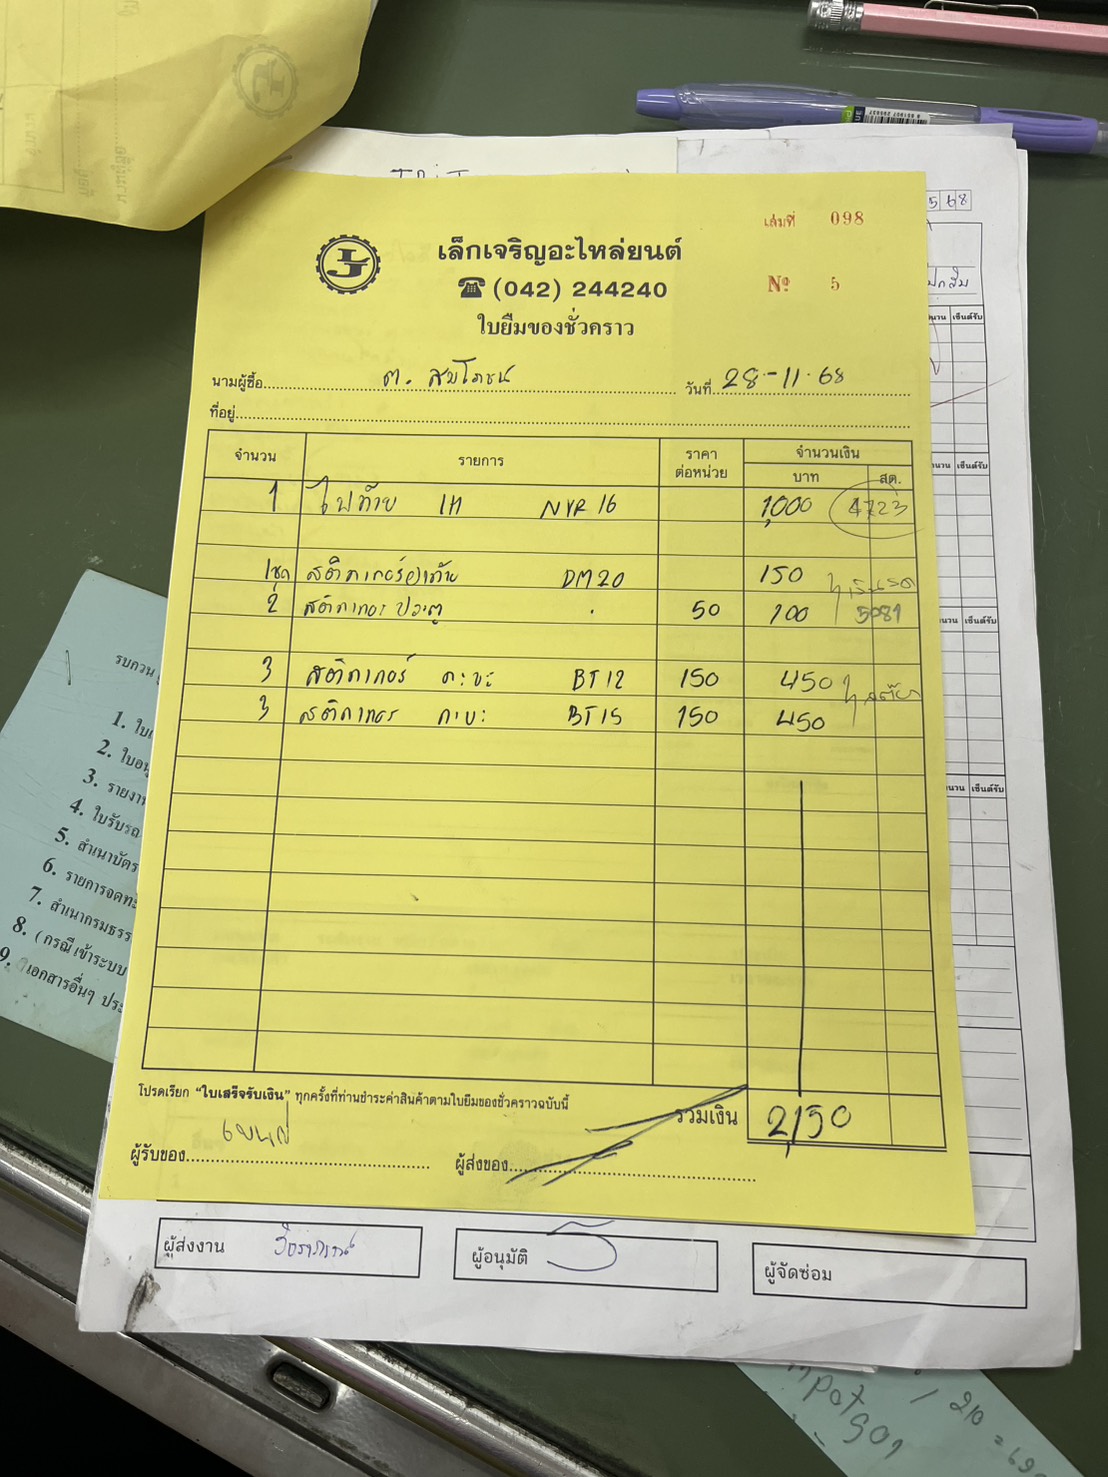 เล่มที่ 098
เล็กเจริญอะไหล่ยนต์
LJ
(042) 244240
Nº 5
ใบยืมของชั่วคราว
นามผู้ซื้อ ต. สมโภชน์ วันที่ 28-11-68
ที่อยู่
จำนวน รายการ ราคาต่อหน่วย จำนวนเงิน
บาท สต.
1 ไฟท้าย LH NYR 16 1,000 4723
1ชุด สติกเกอร์ท้าย DM20 150
2 สติกเกอร ประตู 50 100 5081
3 สติกเกอร์ กะบะ BT12 150 450
3 สติกเกอร กะบะ BT15 150 450
โปรดเรียก "ใบเสร็จรับเงิน" ทุกครั้งที่ท่านชำระค่าสินค้าตามใบยืมของชั่วคราวฉบับนี้
รวมเงิน 2,150
ผู้รับของ
ผู้ส่งของ
ผู้ส่งงาน
ผู้อนุมัติ
ผู้จัดซ่อม
รบกวน
1. ใบ
2. ใบอนุ
3. รายงา
4. ใบรับรถ
5. สำเนาบัตร
6. รายการจดทะ
7. สำเนากรมธรร
8. (กรณีเข้าระบบ
9. เอกสารอื่นๆ ประ
568
จำนวน เซ็นต์รับ